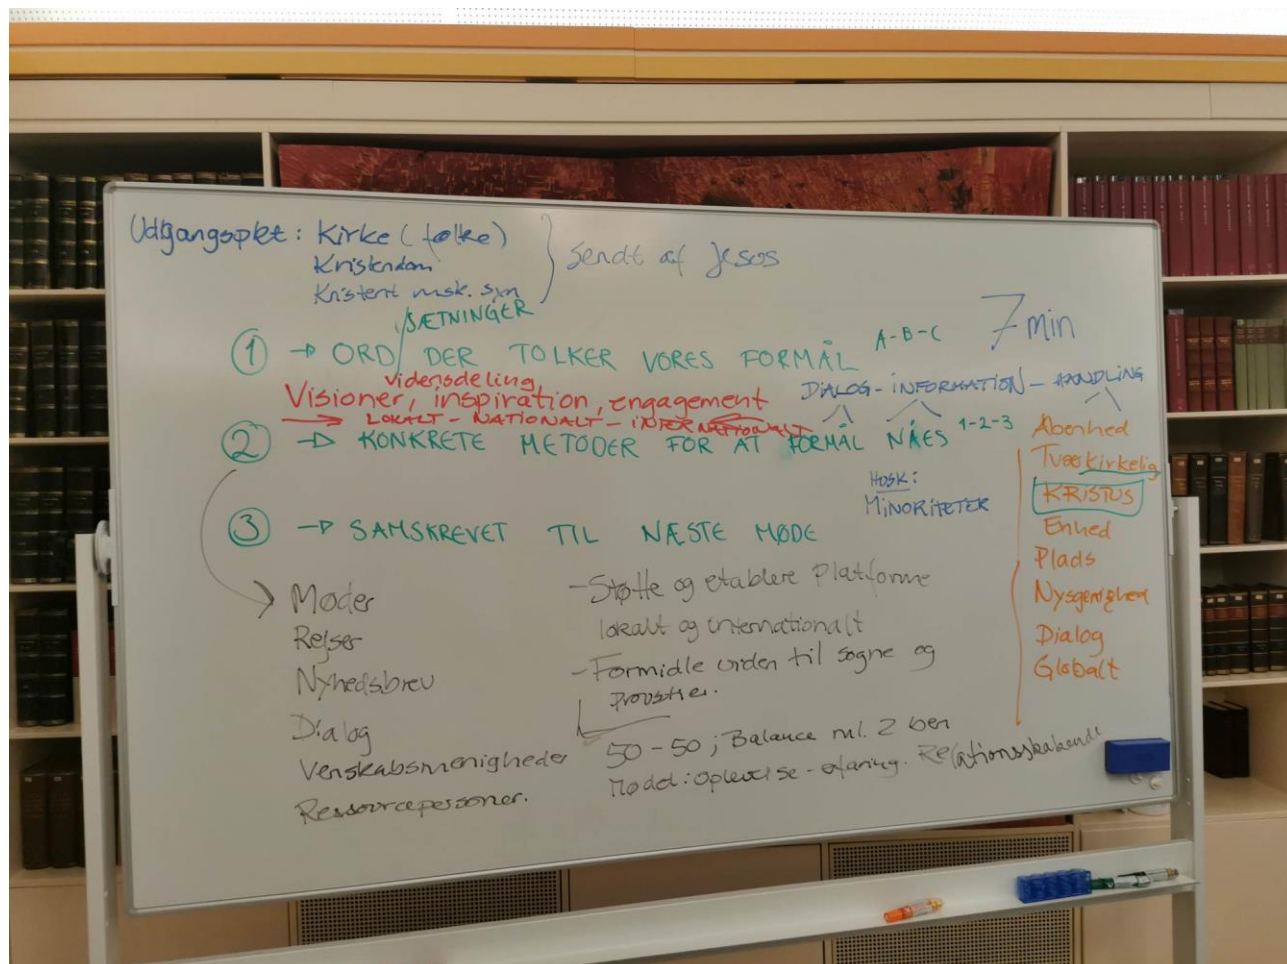 Udgangspkt: Kirke (folke)
Kristendom
Kristent msk. syn
Sendt af Jesus
7 min
/SÆTNINGER
① → ORD DER TOLKER VORES FORMÅL A-B-C
vidensdeling
Visioner, inspiration, engagement
DIALOG - INFORMATION - HANDLING
→ LOKALT - NATIONALT - INTERNATIONALT
② → KONKRETE METODER FOR AT FORMÅL NÅES 1-2-3
HUSK:
MINORITETER
③ → SAMSKREVET TIL NÆSTE MØDE
Åbenhed
Tværkirkelig
KRISTUS
Enhed
Plads
Nysgerrighed
Dialog
Globalt
Møder
Rejser
Nyhedsbrev
Dialog
Venskabsmenigheder
Ressourcepersoner.
- Støtte og etablere platforme
lokalt og internationalt
- Formidle viden til sogne og
provstier.
50-50; Balance ml. 2 ben
Mødet: oplevelse - erfaring. Relationsskabende